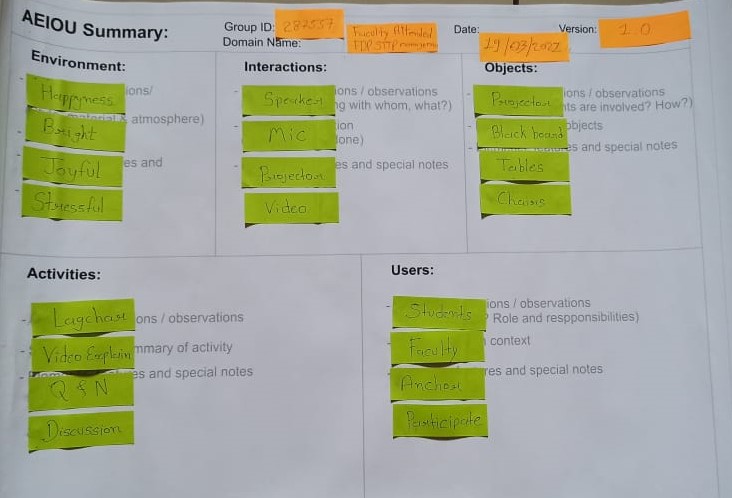 AEIOU Summary:
Group ID: 287537
Domain Name:
Faculty Attended
FDP STTP
Date:
19/03/2022
Version: 1.0
Environment:
Happyness
ions/
Bright
& atmosphere)
Joyful
es and
Stressful
Interactions:
Speaker
ions / observations
ng with whom, what?)
Mic
ion
lone)
Projector
es and special notes
Video
Objects:
Projector
ions / observations
nts are involved? How?)
Black board
objects
es and special notes
Tables
Chairs
Activities:
Lagchar
ons / observations
Video Explain
mmary of activity
es and special notes
Q & N
Discussion
Users:
Students
ions / observations
Role and respponsibilities)
Faculty
context
Anchor
res and special notes
Participate